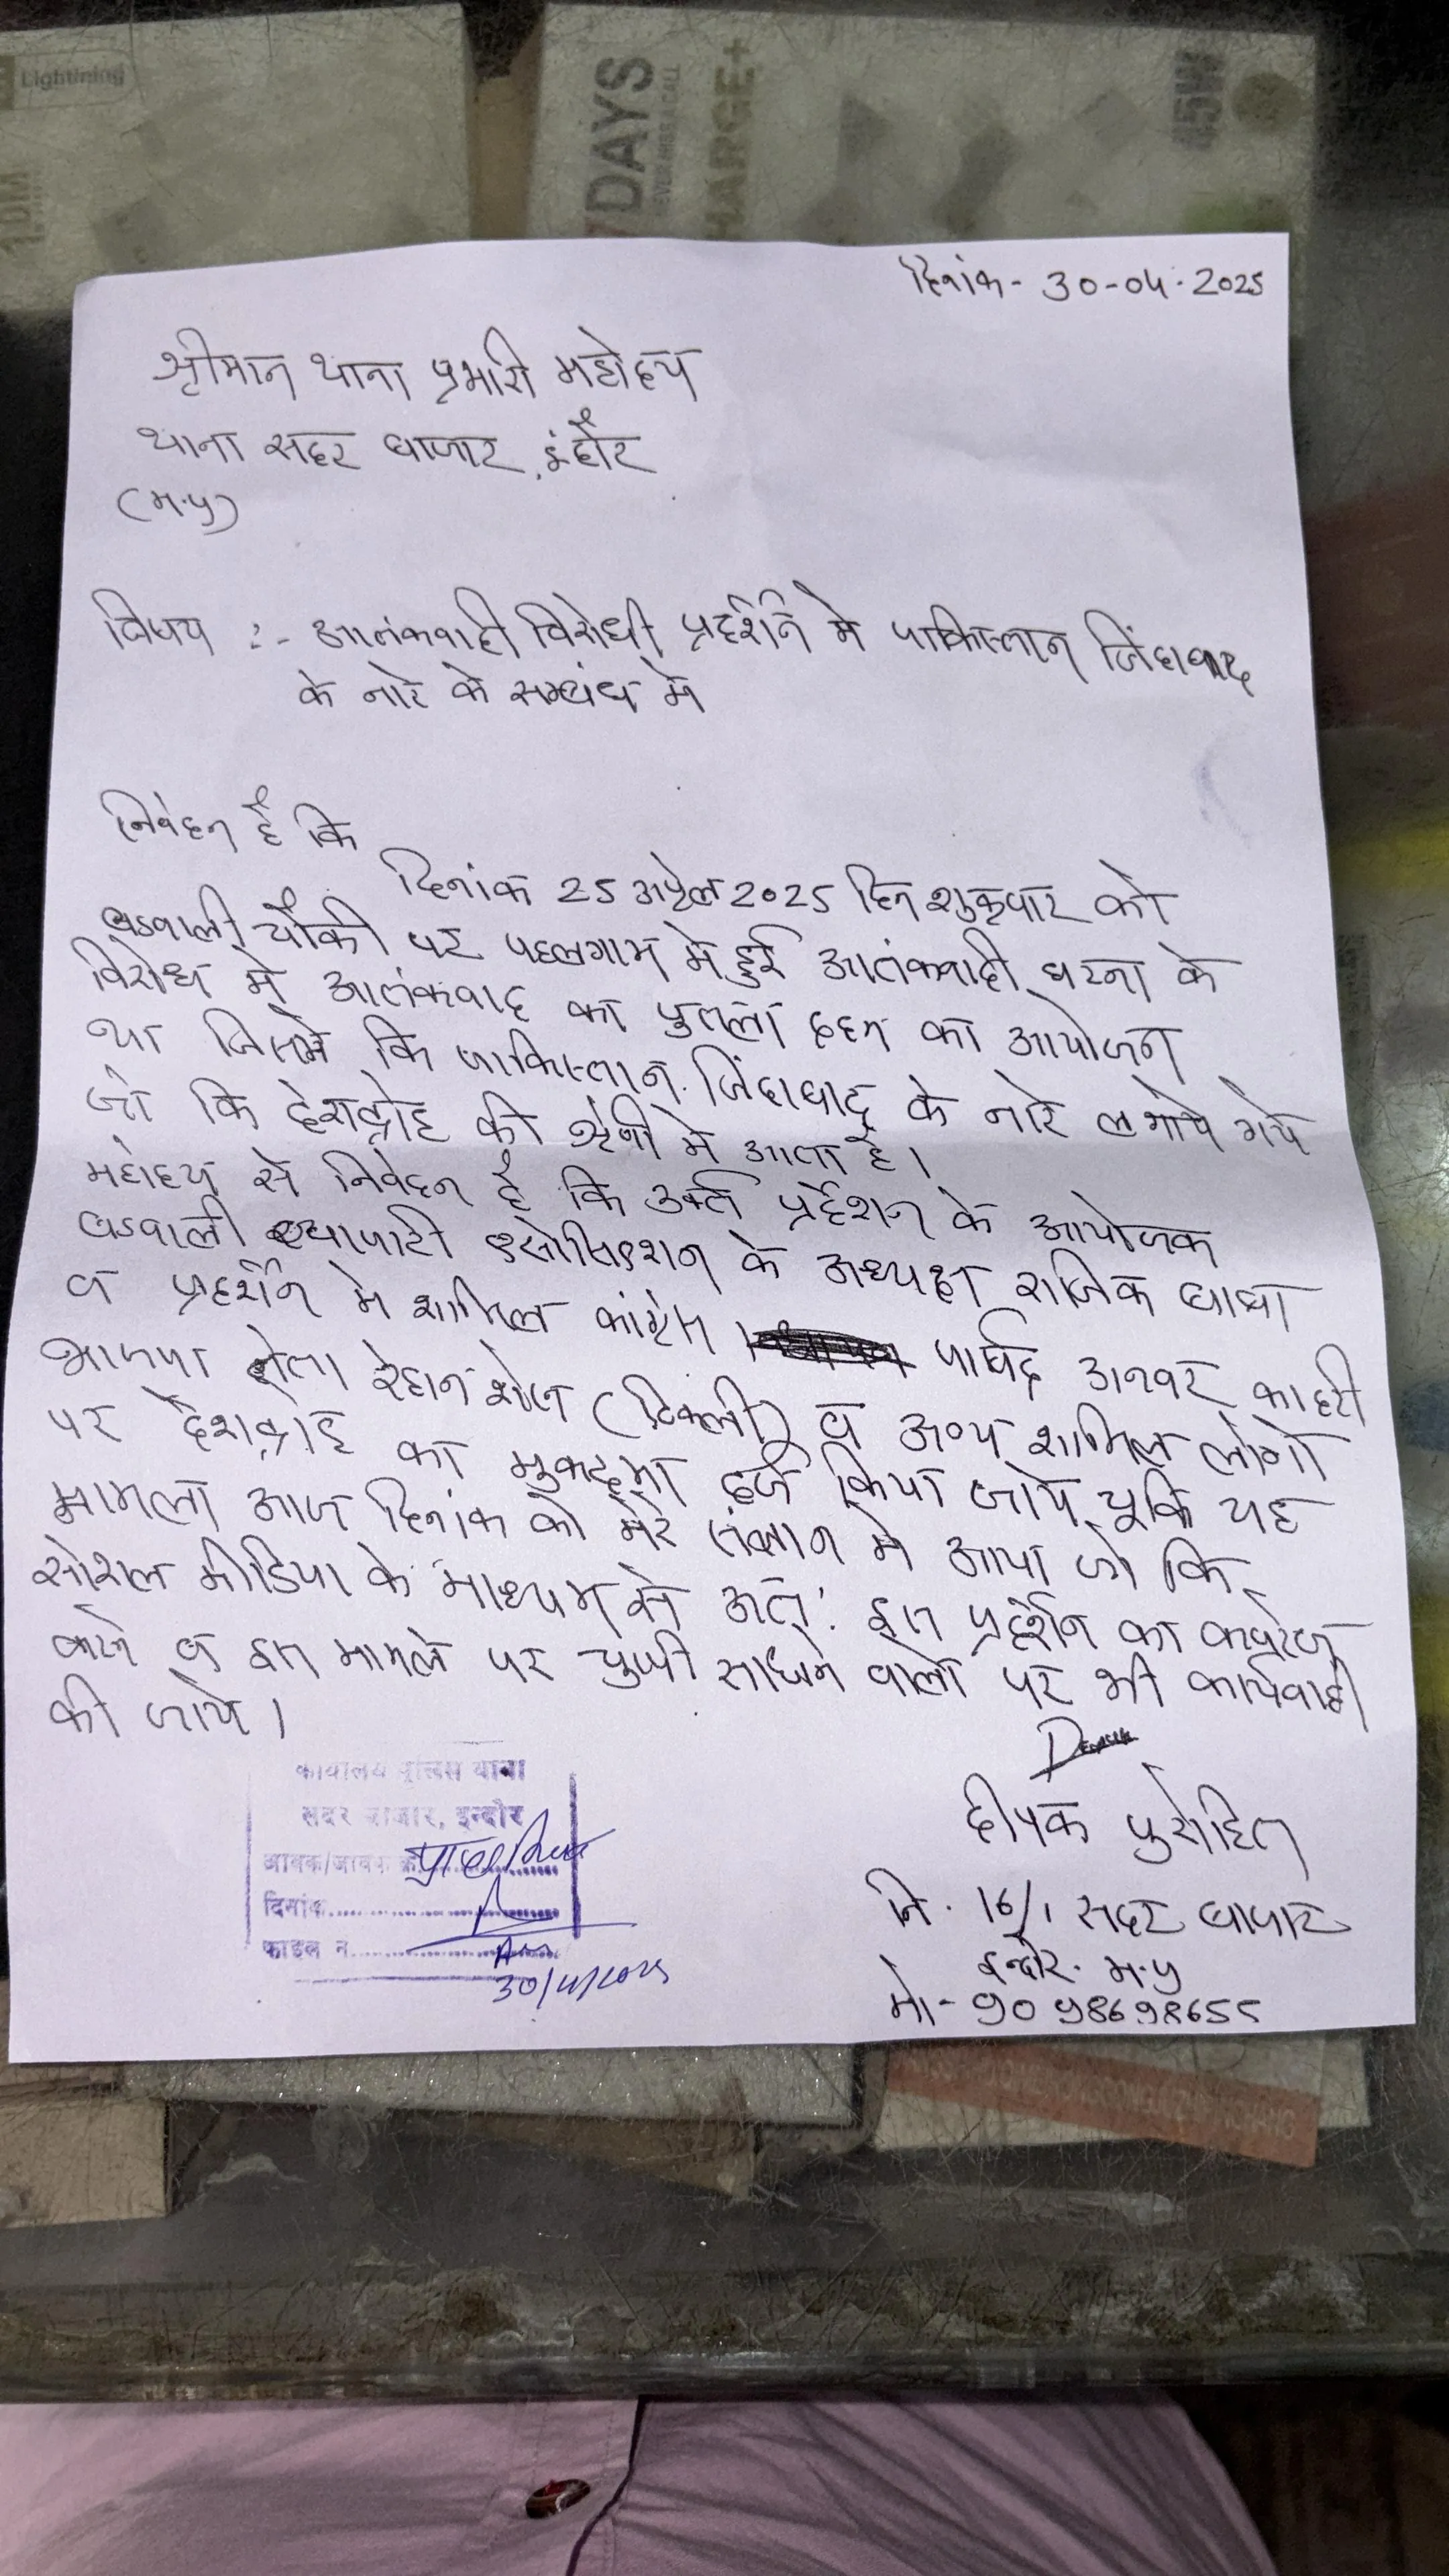 Lightining
1.DM
7DAYS
CHARGE+
45W
दिनांक - 30-04-2025
श्रीमान थाना प्रभारी महोदय
थाना सदर बाजार, इंदौर
(म.प्र)
विषय :- आतंकवादी विरोधी प्रदर्शन मे पाकिस्तान जिंदाबाद
के नारे के सम्बंध मे
निवेदन है कि
दिनांक 25 अप्रेल 2025 दिन शुक्रवार को
बडवाली चौकी पर पहलगाम मे हुई आतंकवादी घटना के
विरोध मे आतंकवाद का पुतला दहन का आयोजन
था जिसमे कि पाकिस्तान जिंदाबाद के नारे लगाये गये
जो कि देशद्रोह की श्रेणी मे आता है।
महोदय से निवेदन है कि उक्त प्रर्दशन के आयोजक
बडवाली व्यापारी एसोसिएशन के अध्यक्ष राजिक बाबा
व प्रदर्शन मे शामिल कांग्रेस पार्षद अनवर कादरी
भाजपा नेता रेहान शेख (टिकली) व अन्य शामिल लोगो
पर देशद्रोह का मुकदमा दर्ज किया जाये चूकि यह
मामला आज दिनांक को मेरे संज्ञान मे आया जो कि
सोशल मीडिया के माध्यम से अत: इस प्रदर्शन का कवरेज
करने व इस मामले पर चुप्पी साधने वालो पर भी कार्यवाही
की जाये।
दीपक पुरोहित
नि. 16/1 सदर बाजार
इन्दौर. म.प्र
मो- 9098698655
कार्यालय पुलिस थाना
सदर बाजार, इन्दौर
आवक/जावक क्र.
दिनांक
फाइल न.
30/4/2025